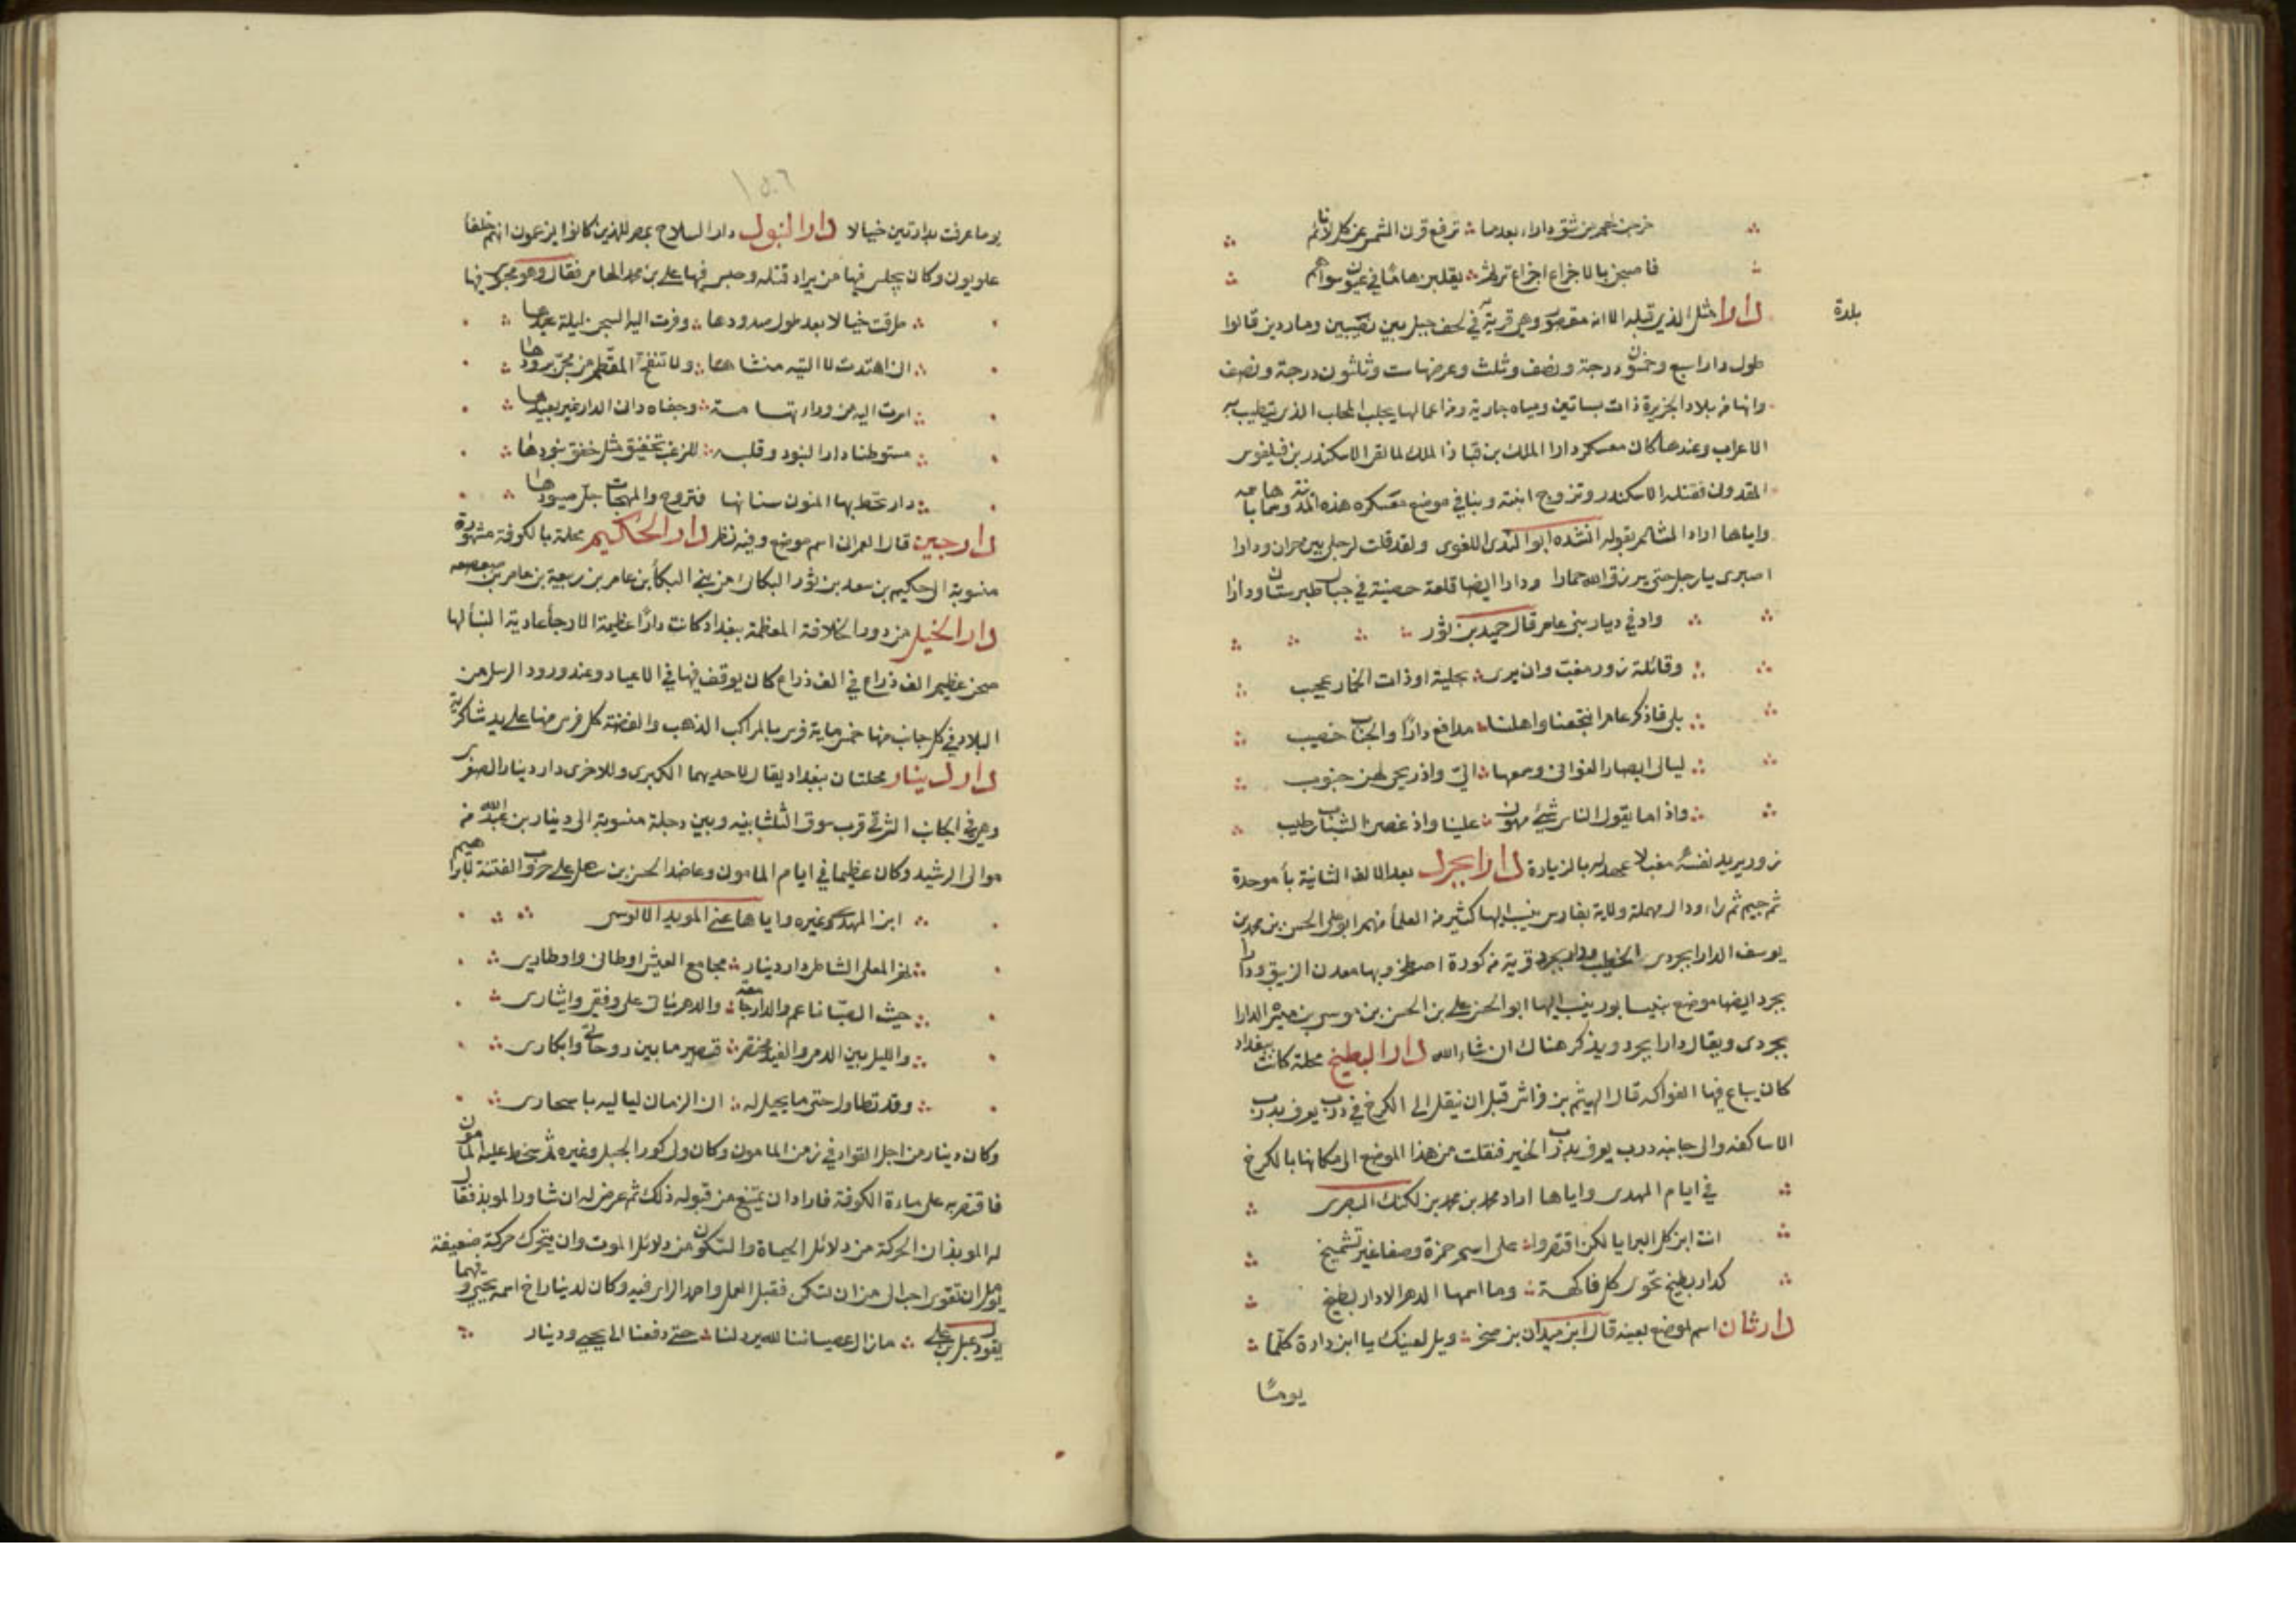 خرجن لهم من شق داراء بعدما ∴ ترفع قرن الشمس عن كل نائم
فاصبحن بالاجزاع اجزاع ترثم ∴ يقلبن هاما في عيون سواهم
بلدة
دارا مثل الذي قبله الا انه مقصور وهي قرية في لحف جبل بين نصيبين وماردين قالوا
طول دارا سبع وخمسون درجة ونصف وثلث وعرضها ست وثلثون درجة ونصف
وانها من بلاد الجزيرة ذات بساتين ومياه جارية ومن اعمالها يجلب المحلب الذي يتطيب به
الاعراب وعندها كان معسكر دارا الملك بن قباذ الملك لما لقي الاسكندر بن فيلفوس
المقدوني فقتله الاسكندر وتزوج ابنته وبنا في موضع معسكره هذه المدينة وسماها باسمه
واياها اراد الشاعر بقوله انشده ابو الندى اللغوي ولقد قلت لرجلي بين حران ودارا
اصبري يا رجل حتى يرزق الله حمارا ودارا ايضا قلعة حصينة في جبال طبرستان ودارا
واد في ديار بني عامر قال حميد بن ثور
وقائلة زور مغب وان يرى ∴ بحلية او ذات الخمار عجيب
بلى فاذكر عام انتجعنا واهلنا ∴ مدافع دارا والجناب خصيب
ليالي ابصار الغواني وسمعها ∴ الي واذ ريحي لهن جنوب
واذ ما يقول الناس شيء مهون ∴ علينا واذ غصن الشباب رطيب
زور يريد نفسه مغب لا عهد له بالزيارة دارابجرد بعد الالف الثانية باء موحدة
ثم جيم ثم راء ودال مهملة ولاية بفارس ينسب اليها كثير من العلماء منهم ابو علي الحسن بن محمد بن
يوسف الدارابجردي الخطيب ودارابجرد قرية من كورة اصطخر وبها معدن الزيبق ودارا
بجرد ايضا موضع بنيسابور ينسب اليها ابو الحسن علي بن الحسن بن موسى بن ميسرة الدارا
بجردي ويقال دارابجرد ويذكر هناك ان شاء الله دار البطيخ محلة كانت ببغداد
كان يباع فيها الفواكه قال الهيثم بن فراس قبل ان تنقل الى الكرخ في درب يعرف بدرب
الاساكفه والى جانبه درب يعرف بدرب الخير فنقلت من هذا الموضع الى مكانها بالكرخ
في ايام المهدي واياها اراد محمد بن محمد بن لكنك البصري
انت ابن كل البرايا لكن اقتصروا ∴ على اسم حمزة وصفا غير تشميخ
كدار بطيخ تحوي كل فاكهة ∴ وما اسمها الدهر الا دار بطيخ
دارثان اسم لموضع بعينه قال ابن ميدان بن صخر ∴ ويل لعينك يا ابن دارة كلما
يوما
١٥٠٦
يوما عرفت بدارتين خيالا دار البنود دار السلاح بمصر للذين كانوا يزعمون انهم خلفاء
علويون وكان يحبس فيها من يراد قتله وحبس فيها علي بن محمد الهامر فقال وهو محبوس فيها
طرقت خيالا بعد طول صدودها ∴ وفرت اليه السجن ليلة عيدها
انى اهتدت لا التيه منشا همها ∴ ولا تنفج المقطم من مجر برودها
اسرت اليه من وراء تهامة ∴ وجفاه داني الدار غير بعيدها
مستوطنا دار البنود وقلبه ∴ للرعب تخفق مثل خفق بنودها
دار تحط بها المنون سنانها فتروح والمهجات جل صيودها
دارجين قال العمراني اسم موضع وفيه نظر دار الحكيم محلة بالكوفة مشهورة
منسوبة الى حكيم بن سعد بن ثور البكائي من بني البكاء بن عامر بن ربيعة بن عامر بن صعصعه
دار الخيل من دور الخلافة المعظمة ببغداد كانت دارا عظيمة الارجاء عادية البناء لها
صحن عظيم الف ذراع في الف ذراع كان يوقف فيها في الاعياد وعند ورود الرسل من
البلاد في كل جانب منها خمس ماية فرس بالمراكب الذهب والفضة كل فرس منها على يد شاكري
دار دينار محلتان ببغداد يقال لاحديهما الكبرى وللاخرى دار دينار الصغرى
وهي في الجانب الشرقي قرب سوق الثلثا بينه وبين دجلة منسوبة الى دينار بن عبد الله من
موالي الرشيد وكان عظيما في ايام المامون وعاضد الحسن بن سهل على حروب الفتنة لابراهيم
ابن المهدي وغيره واياها عنى المويد الالوسي
نهر المعلى الشاطي دار دينار ∴ مجامع العيش اوطاني واوطاري
حيث الصبا ناعم والدار جامعه ∴ والدهر تات على وفقي وايثاري
والليل بين الدمى والغيد مختصر ∴ قصير ما بين روحاتي وابكاري
وقد تطاول حتى ما يخيل له ∴ ان الزمان لياليه باسحاري
وكان دينار من اجل القواد في زمن المامون وكان ولي كور الجبل وغيره ثم سخط عليه المامون
فاقتصر به على ماءة الكوفة فاراد ان يمتنع من قبوله ذلك ثم عرض له ان شاور الموبذ فقال
له الموبذ ان الحركة من دلائل الحياة والسكون من دلائل الموت وان تتحرك حركة ضعيفة
تؤمل ان تقوى احب الي من ان تسكن فقبل العمل واحمد الراي فيه وكان لدينار اخ اسمه يحيى وفيهما
يقول دعبل بن علي ∴ ما زال عصياننا لله يرذلنا ∴ حتى دفعنا الى يحيى ودينار